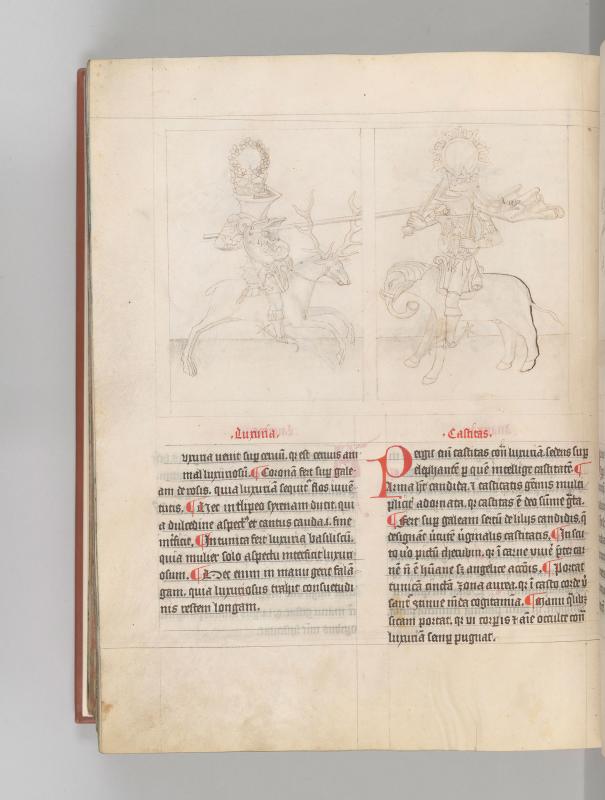 .Luxuria.
uxuria uenit sup ceruū. qr est ceruus ani
mal luxuriosū. Coronā fert sup gale
am de rosis. quia luxuriā sequit flos iuuē
tutis. Nec in clipeo syrenam ducit. qui
a dulcedine aspect et cantus cauda. i. fine
inficit. In tunica fert luxuria basiliscū.
quia mulier solo aspectu interficit luxuri
osum. Nec enim in manu gerit falā
gam. quia luxuriosus trahit consuetudi
nis restem longam.
.Castitas.
Pergit eni castitas con luxuriā. sedens sup
elephante p que intellige castitatē
Arma hr candida. castitatis gmis multi
plicit adornata. qr castitas ē deo sūme gta.
Fert sup galeam sertū de liliis candidis. q
designāt uirtutē uginalis castitatis. In scu
to uo pictū cherubin. qr i carne viuē pter car
nē n ē hūane angelice accōis. Portat
tunicā cinctā zona aurea. qr i casto corde
sunt
sicam portat. qr ui corpis aīe occulte con
luxuriā semp pugnat.